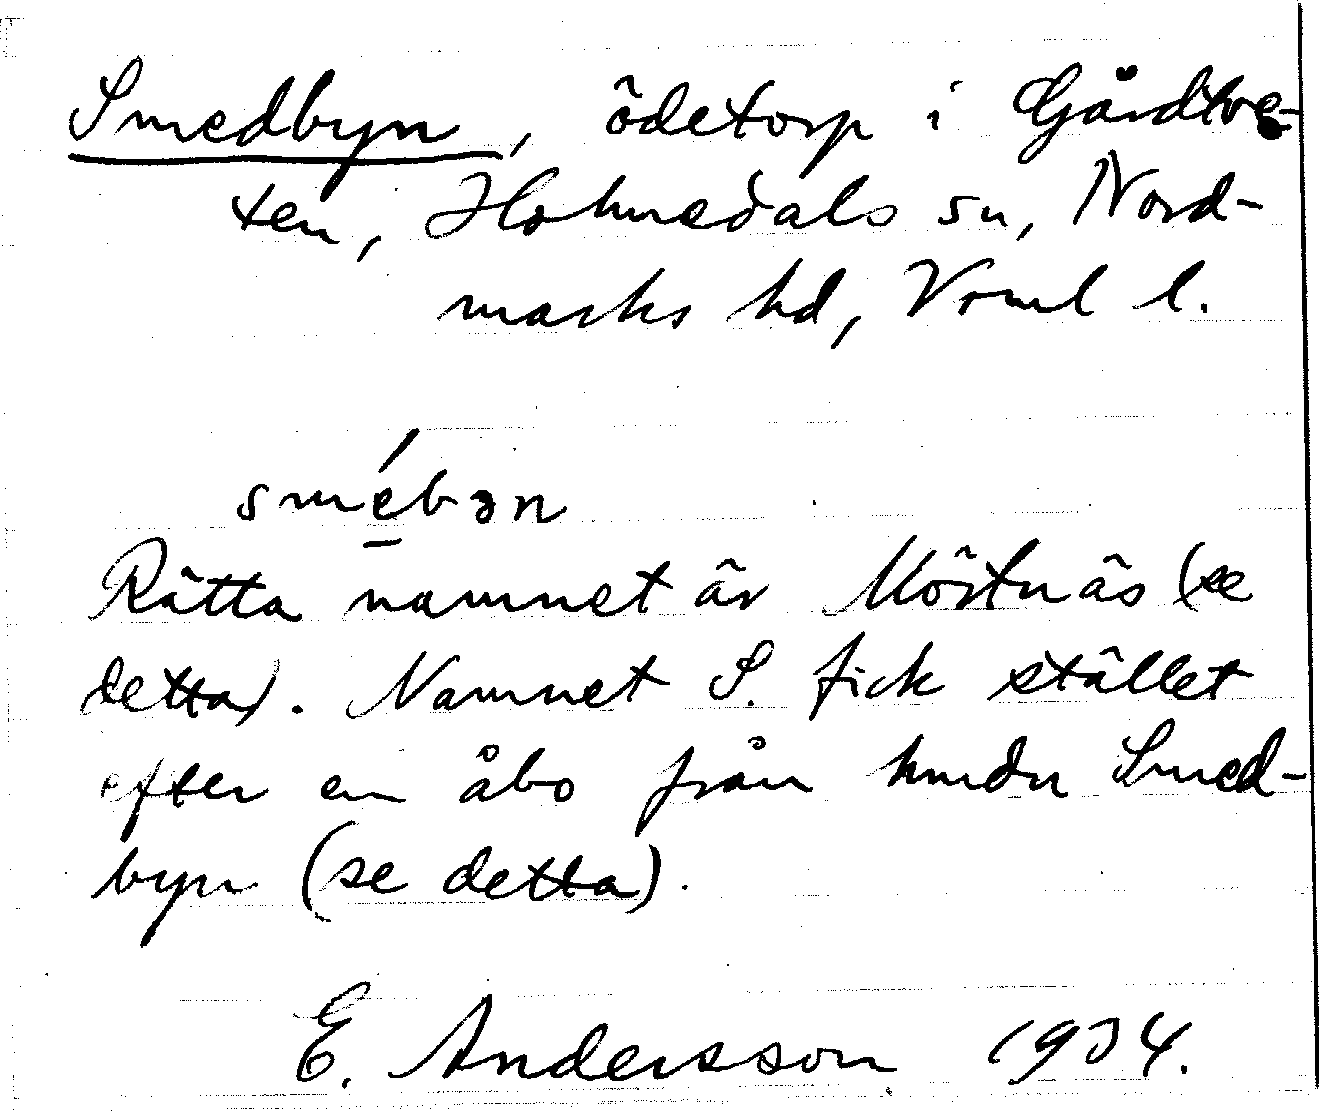 Smedbyn, ödetorp i Gårdtve-
ten, Holmedals sn, Nord-
marks hd, Vrml l.
smébən
Rätta namnet är Mörtnäs (se
detta). Namnet S. fick stället
efter en åbo från hmdn Smed-
byn (se detta).
E. Andersson 1934.